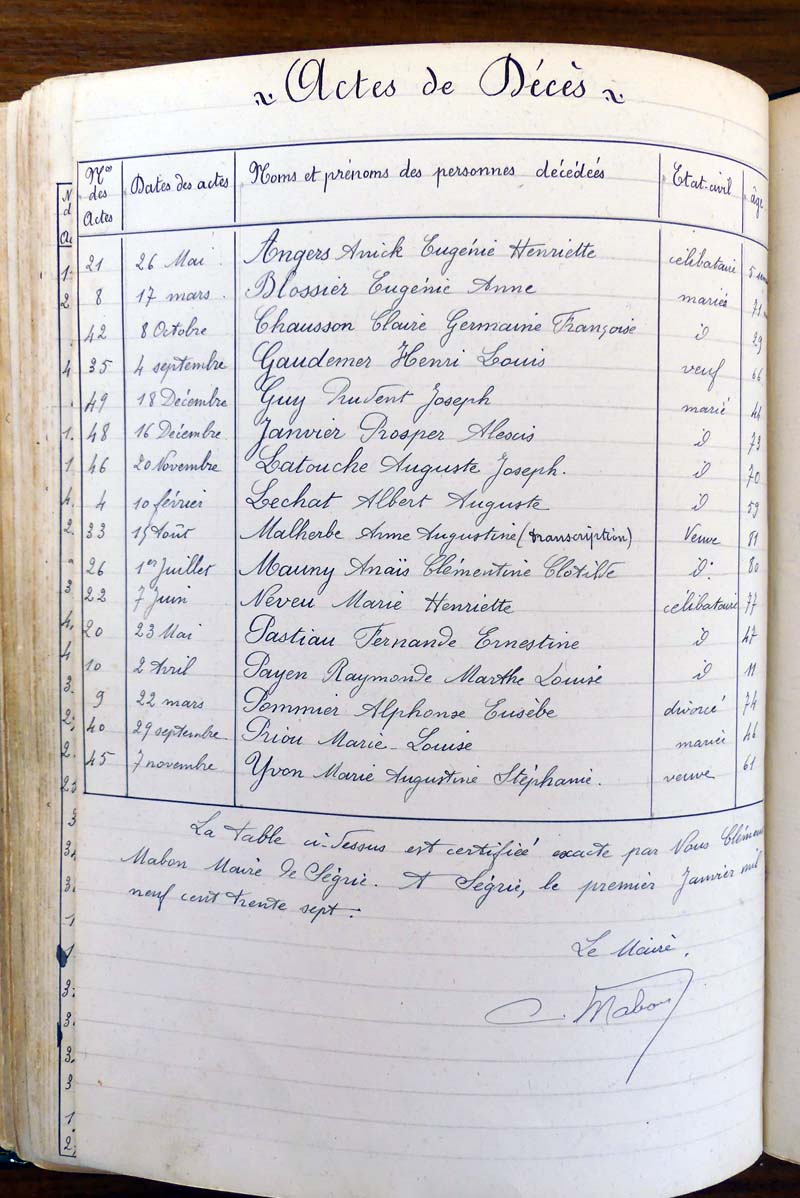 Actes de Décès
Nos des Actes Dates des actes Noms et prénoms des personnes décédées Etat-civil âge
21 26 Mai Angers Anick Eugénie Henriette célibataire 5
8 17 mars Blossier Eugénie Anne mariée 71
42 8 Octobre Chausson Claire Germaine Françoise d 29
35 4 septembre Gaudemer Henri Louis veuf 66
49 18 Décembre Guy Prudent Joseph marié
48 16 Décembre Janvier Prosper Alexis d 73
46 20 Novembre Latouche Auguste Joseph. d 70
4 10 février Lechat Albert Auguste d 59
33 15 Août Malherbe Anne Augustine (transcription) Veuve 81
26 1er Juillet Mauny Anaïs Clémentine Clotilde d° 80
22 7 Juin Neveu Marie Henriette célibataire 77
20 23 Mai Pastiau Fernande Ernestine d 47
10 2 Avril Payen Raymonde Marthe Louise d 11
9 22 mars Pommier Alphonse Eusèbe divorcé 74
40 29 septembre Priou Marie-Louise mariée 46
45 7 novembre Yvon Marie Augustine Stéphanie. veuve 61
La table ci-dessus est certifiée exacte par Nous
Mabon Maire de Ségrie. A Ségrie, le premier Janvier mil
neuf cent trente sept.
Le Maire.
C. Mabon